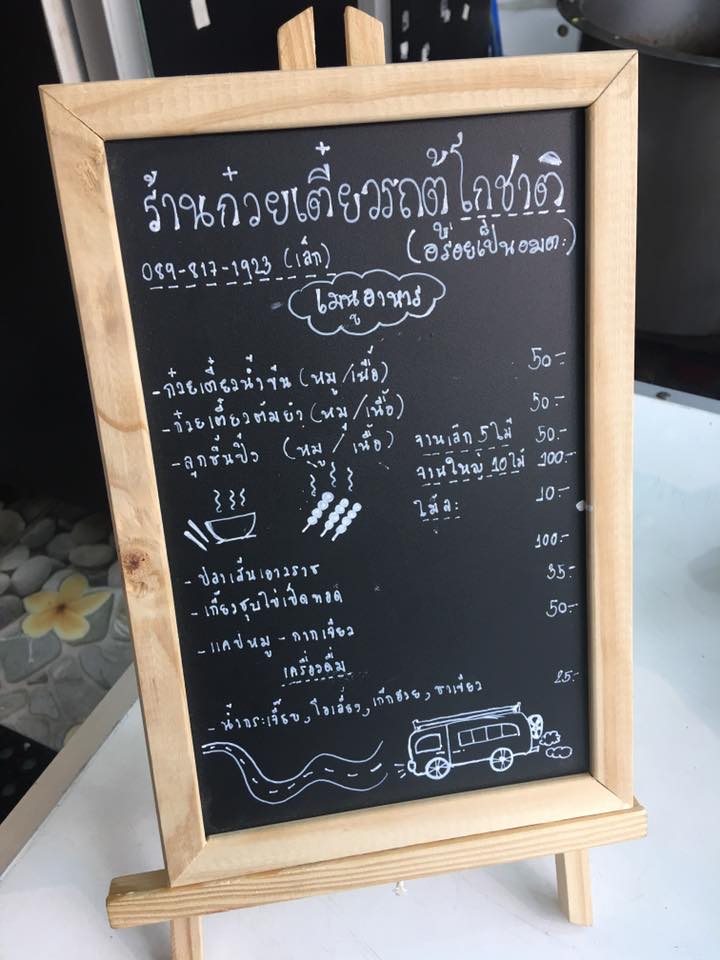 ร้านก๋วยเตี๋ยวรถตู้โกชาติ
089-817-1923 (เล็ก) (อร่อยเป็นอมตะ)
เมนูอาหาร
-ก๋วยเตี๋ยวน้ำข้น (หมู/เนื้อ) 50.-
-ก๋วยเตี๋ยวต้มยำ (หมู/เนื้อ) 50.-
-ลูกชิ้นปิ้ง (หมู/เนื้อ) จานเล็ก 5 ไม้ 50.-
จานใหญ่ 10 ไม้ 100.-
ไม้ละ 10.-
- ปลาเส้นเยาวราช 100.-
- เกี๊ยวซุปไข่เป็ดทอด 35.-
- แคปหมู - กากเจียว 50.-
เครื่องดื่ม
- น้ำกระเจี๊ยบ, โอเลี้ยง, เก๊กฮวย, ชาเขียว 25.-